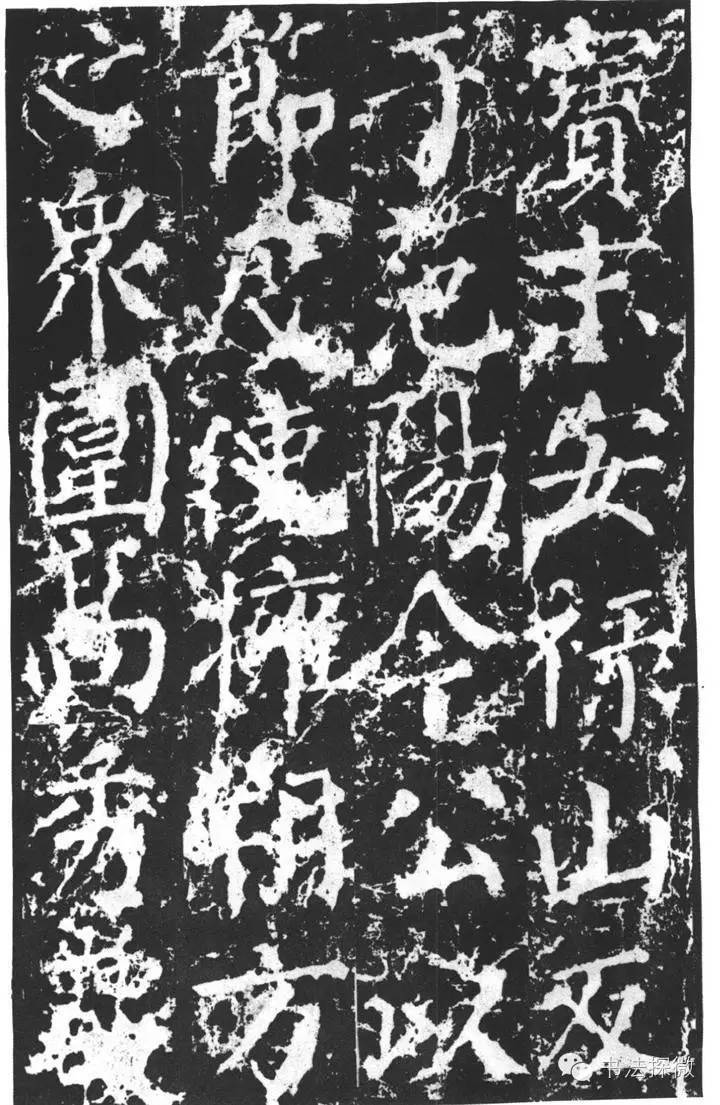 寶末安祿山反
于范陽令公以
節度使擁朔方
之眾圍高秀巖
书法探微